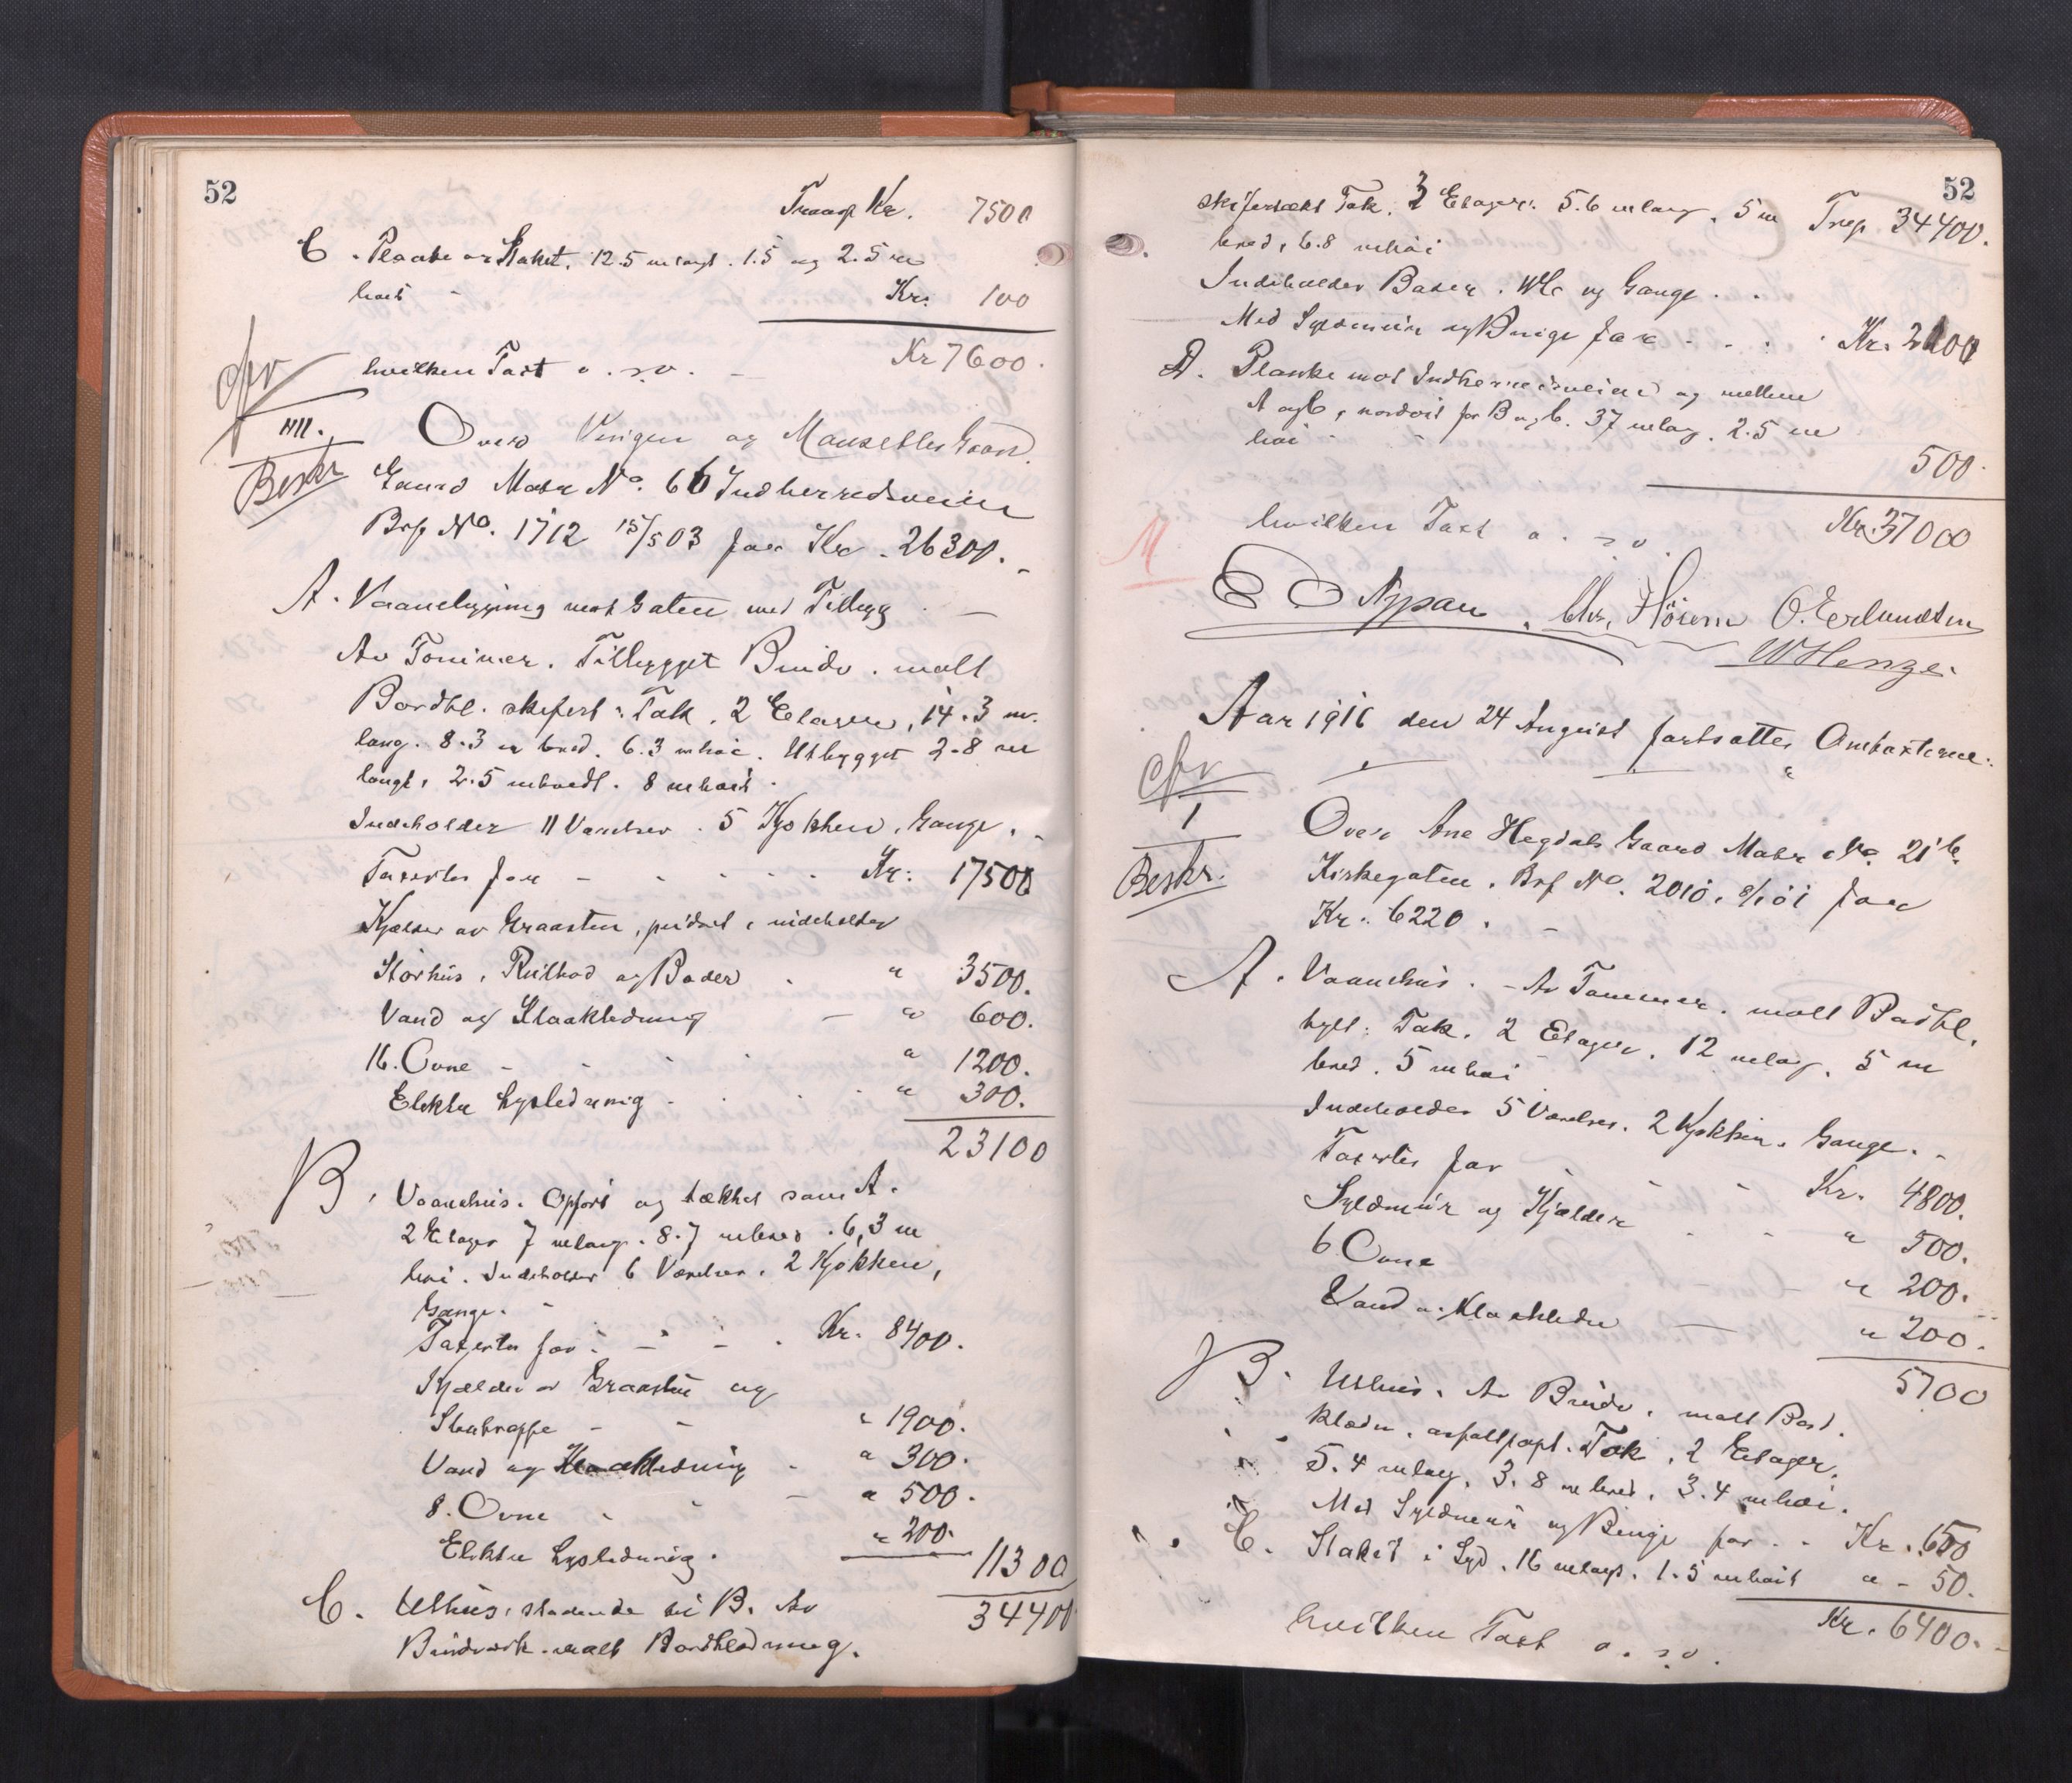 52
Transp Kr. 7500
C. Planke og Staket, 12.5 m langt. 1.5 og 2.5 m
høit - Kr. 100
Kr 7600.
hvilken Taxt o. s. v.
Over Vingen og Mauseths Gaard
Beskr
Gaard Matr No. 66 Indherredsveien
Brf No. 1712 15/5 03 for Kr. 26300.-
A. Vaanebygning mot Gaten med Tilbygg
Av Tømmer. Tilbygget Bindv. malt
Bordkl. skifert. Tak. 2 Etager, 14.3 m.
lang. 8.3 m bred. 6.3 m høi. Utbygget 2.8 m
langt, 2.5 m bredt. 8 m høit.
Indeholder 11 Værelser. 5 Kjøkken, Gange.
Taxertes for - Kr: 17500
Kjelder av Graasten, pudset, indeholder
Størhus, Rulbod og Boder " 3500.
Vand og Kloakledning " 600.
16. Ovne - " 1200.
Elektr Lysledning " 300.
23100
B. Vaanehus. Opført og tækket som A.
2 Etager 7 m lang. 8.7 m bred. 6,3 m
høi. Indeholder 6 Værelser. 2 Kjøkken,
Gange.
Taxertes for Kr. 8400.
Kjelder av Graasten og
" 1900.
Vand og Kloakledning " 300.
8. Ovne " 500.
Elektr Lysledning. " 200.
11300
34400
C. Uthus, stødende til B. Av
Bindverk. malt Bordklædning.
52
Transp. 34400.
skifertækt Tak. 3 Etager. 5.6 m lang, 5 m
bred, 6.8 m høi
Indeholder Boder. WC og Gange.
Med Syldmur og Binge for Kr. 2100
D. Planke mot Indherredsveien og mellem
A og C, nordost for B og C. 37 m lang. 2.5 m
høi 500.
Kr. 37000
hvilken Taxt o. s. v.
Nypan. Chr. Hörem O. Erlandsen
W Henze.
Aar 1916 den 24 August fortsattes Omtaxterne.
1
Beskr.
Over Ane Hegdals Gaard Matr No. 21 b.
Kirkegaten. Brf No. 2010, 8/1 01 for
Kr. 6220.
A. Vaanehus. - Av Tømmer. malt Bordkl.
Tak. 2 Etager. 12 m lang. 5 m
bred. 5 m høi
Indeholder 5 Værelser. 2 Kjøkken. Gange.
Taxertes for Kr. 4800.
Syldmur og Kjelder " 500.
6 Ovne " 200.
Vand og Kloakledn " 200.
5700
B. Uthus. Av Bindv. malt Bord.
klædn. asfaltpapt. Tak. 2 Etager.
5.4 m lang. 3.8 m bred. 3.4 m høi.
Med Syldmur og Binge for Kr. 650
C. Staket i Syd. 16 m langt. 1.5 m høit " 50.
Kr. 6400.-
hvilken Taxt o. s. v.